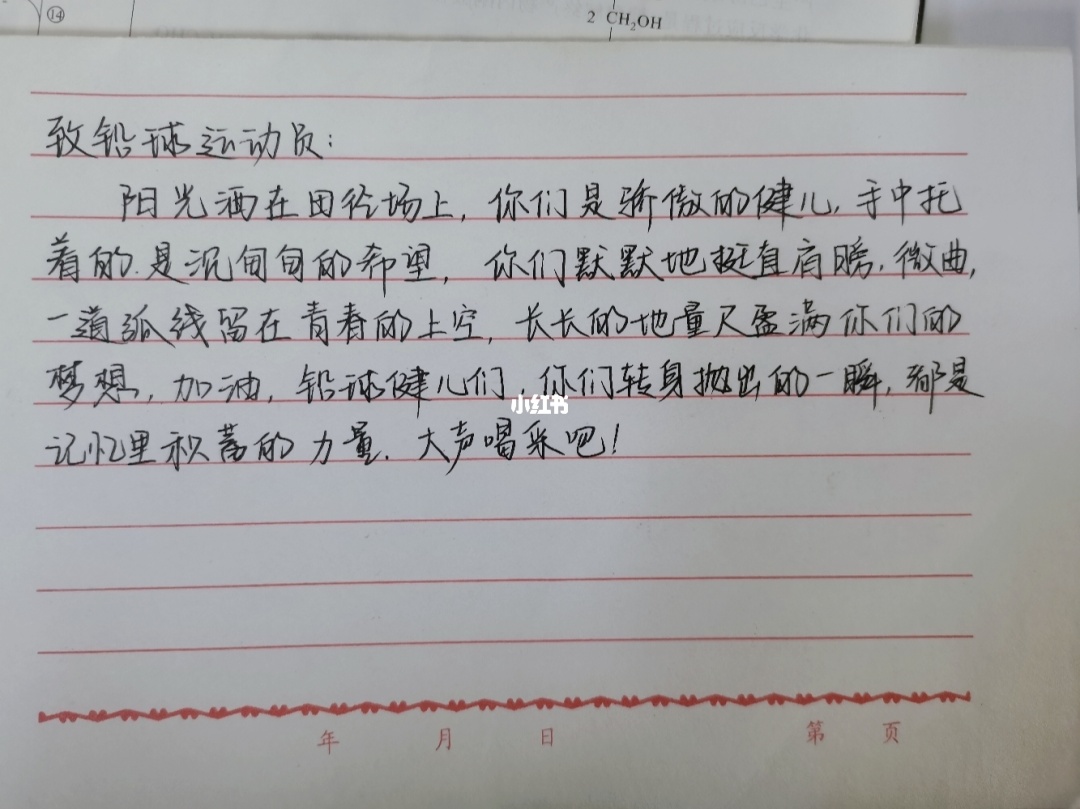 ⑭
2 CH₂OH
致铅球运动员：
阳光洒在田径场上，你们是骄傲的健儿，手中托
着的是沉甸甸的希望，你们默默地挺直肩膀，微曲，
一道弧线留在青春的上空，长长的地量尺盈满你们的
梦想，加油，铅球健儿们，你们转身抛出的一瞬，都是
记忆里积蓄的力量．大声喝采吧！
小红书
年 月 日 第 页